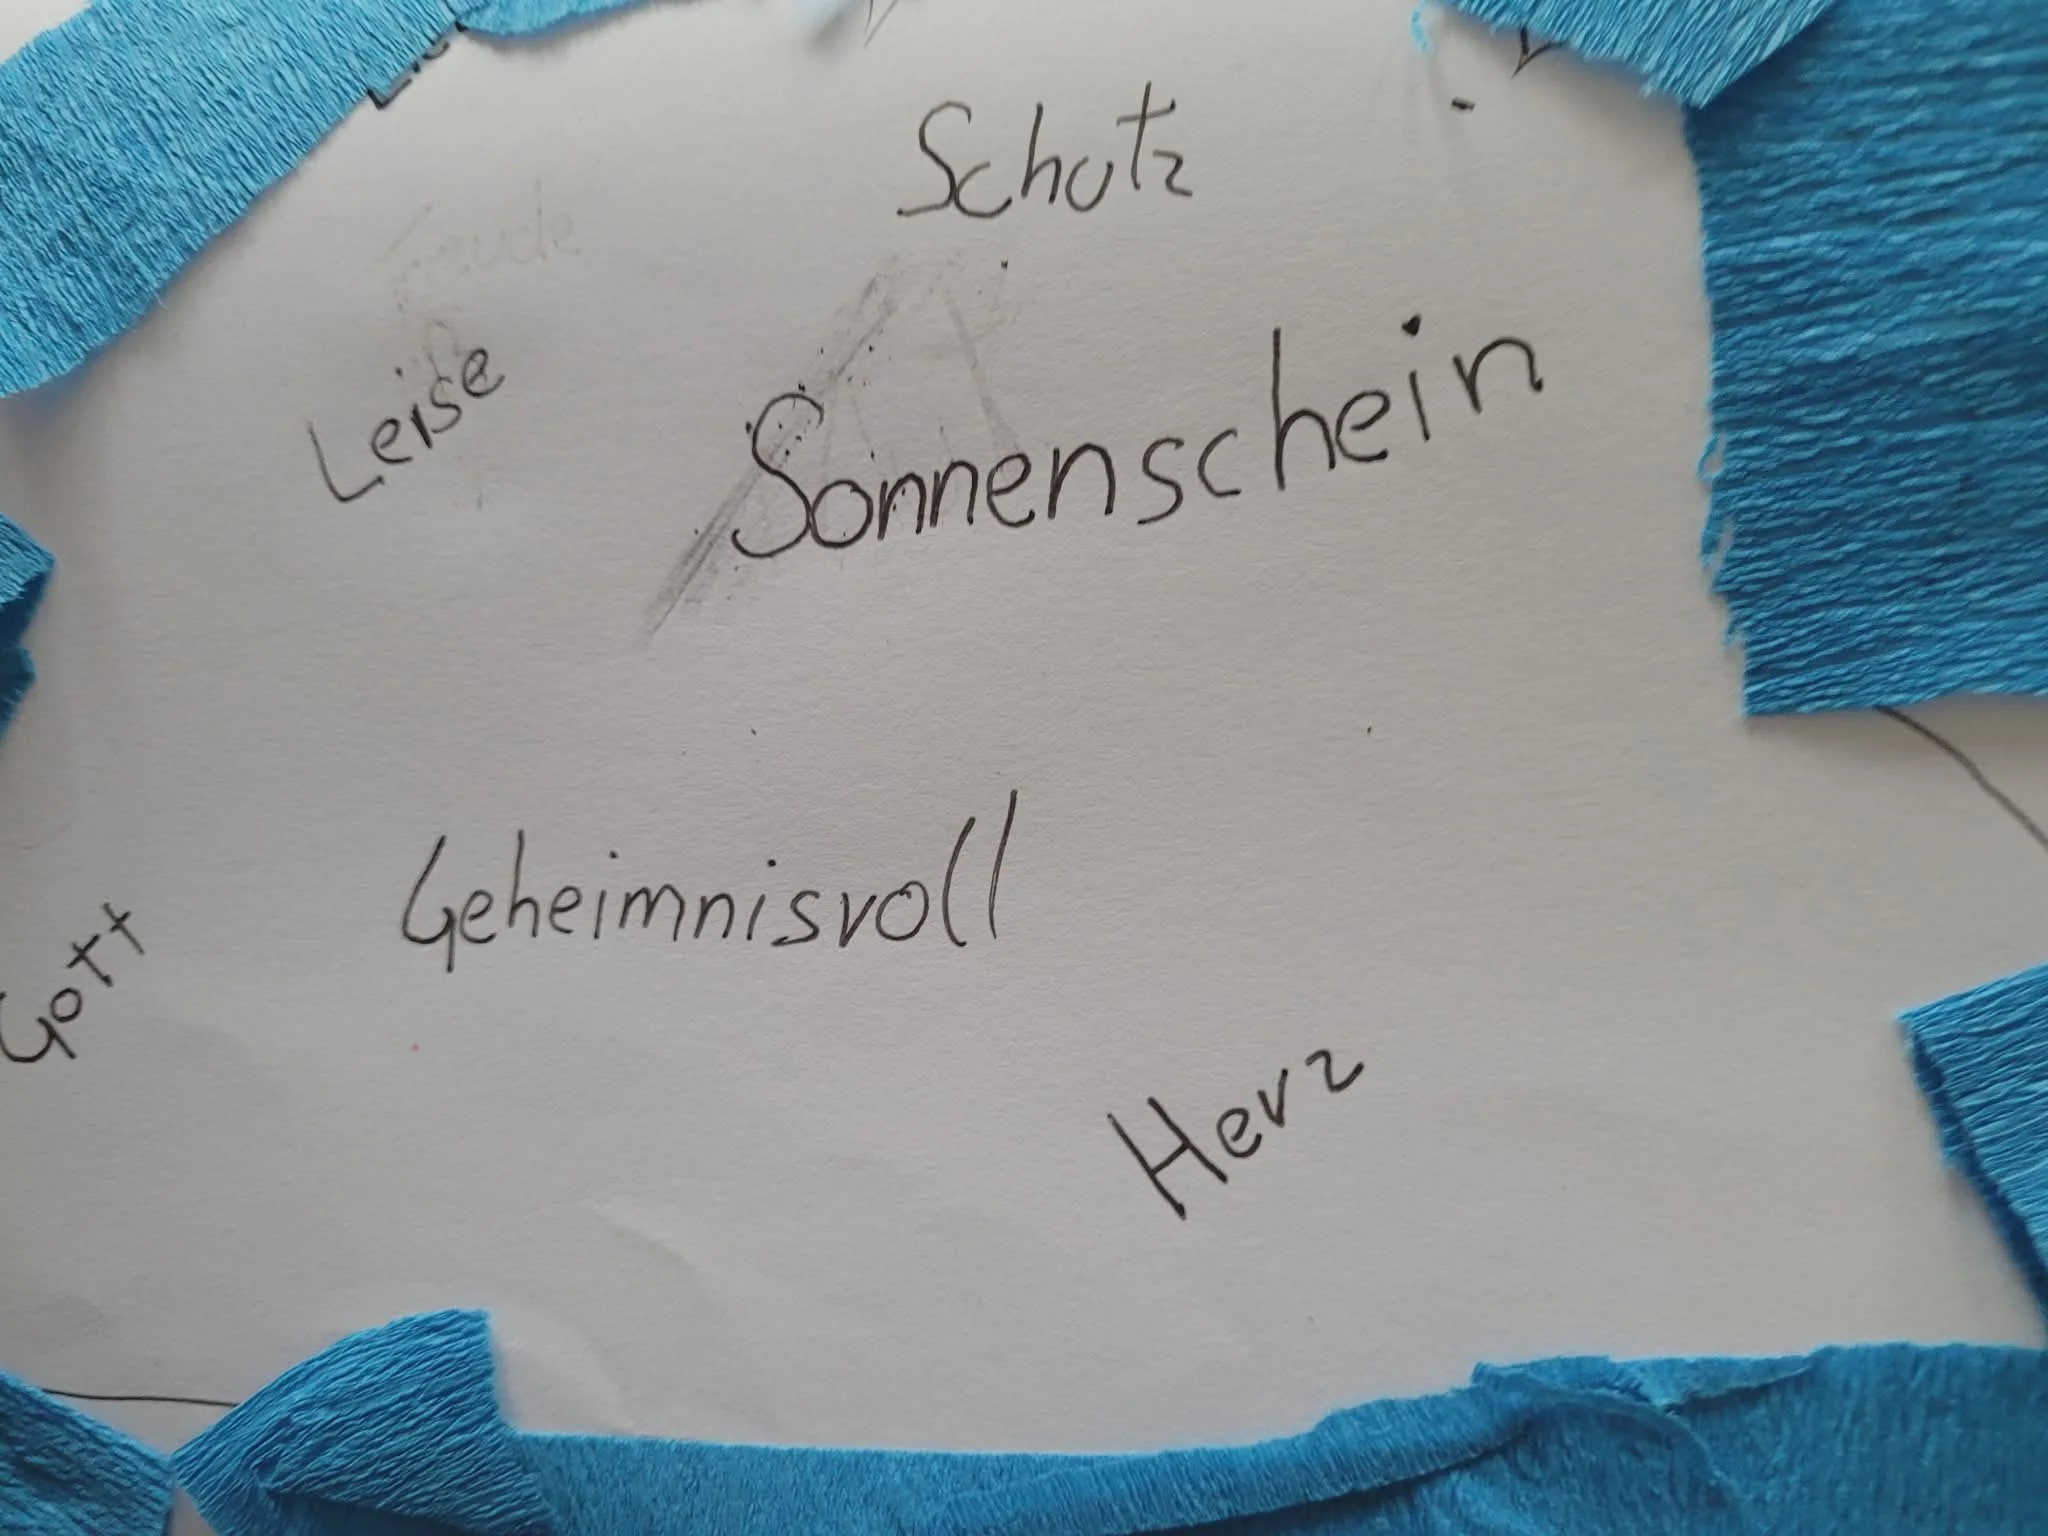 Schutz
Leise
Sonnenschein
Geheimnisvoll
Gott
Herz